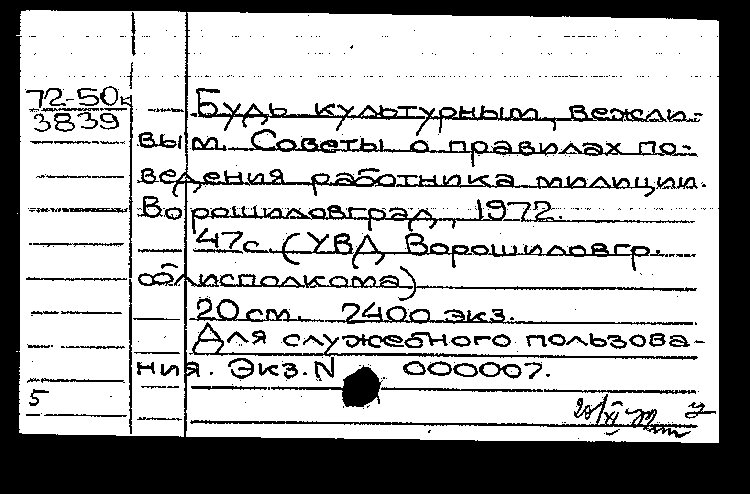 72-50к
3839
Будь культурным, вежли-
вым. Советы о правилах по-
ведения работника милиции.
Ворошиловград, 1972.
47с. (УВД Ворошиловгр.
облисполкома)
20 см. 2400 экз.
Для служебного пользова-
ния. Экз. N 000007.
5